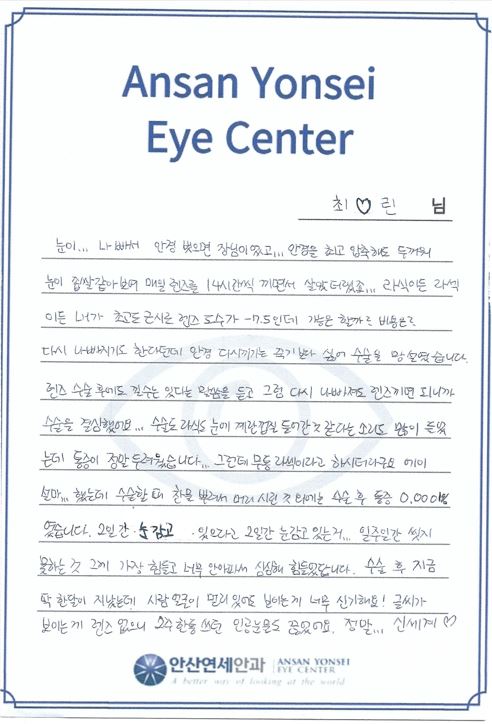 Ansan Yonsei
Eye Center
최♡린 님
눈이... 나빠서 안경 벗으면 장님이였고... 안경을 최고 압축해도 두꺼워
눈이 콥쌀감아보여 매일 렌즈를 14시간씩 끼면서 살았더랬죠... 라식이든 라섹
이든 내가 초고도 근시로 렌즈 도수가 -7.5인데 가능은 할까? 비용은?
다시 나빠지기도 한다던데 안경 다시끼기는 죽기보다 싫어 수술을 망설였습니다.
렌즈 수술 후에도 낄수는 있다는 말씀을 듣고 그럼 다시 나빠져도 렌즈끼면 되니까
수술을 결심했어요... 수술도 라식도 눈에 계란껍질 들어간것 같다는 소리도 많이 듣었
는데 통증이 정말 두려웠습니다... 그런데 무통 라섹이라고 하시더라구요 에이
설마... 했는데 수술할 때 찬물 뿌려서 머리 시린 것 외에는 수술 후 통증 0.00
였습니다. 2일간 눈감고 있으라고 2일간 눈감고 있는거... 일주일간 씻지
못하는 것 그게 가장 힘들고 너무 안아파서 심심해 힘들었답니다. 수술 후 지금
딱 한달이 지났는데 사람 얼굴이 멀리있어도 보이는게 너무 신기해요! 글씨가
보이는게 렌즈 없으니 2주 한통 쓰던 인공눈물도 끊었어요. 정말... 신세계♡
안산연세안과 ANSAN YONSEI
EYE CENTER
A better way of looking at the world